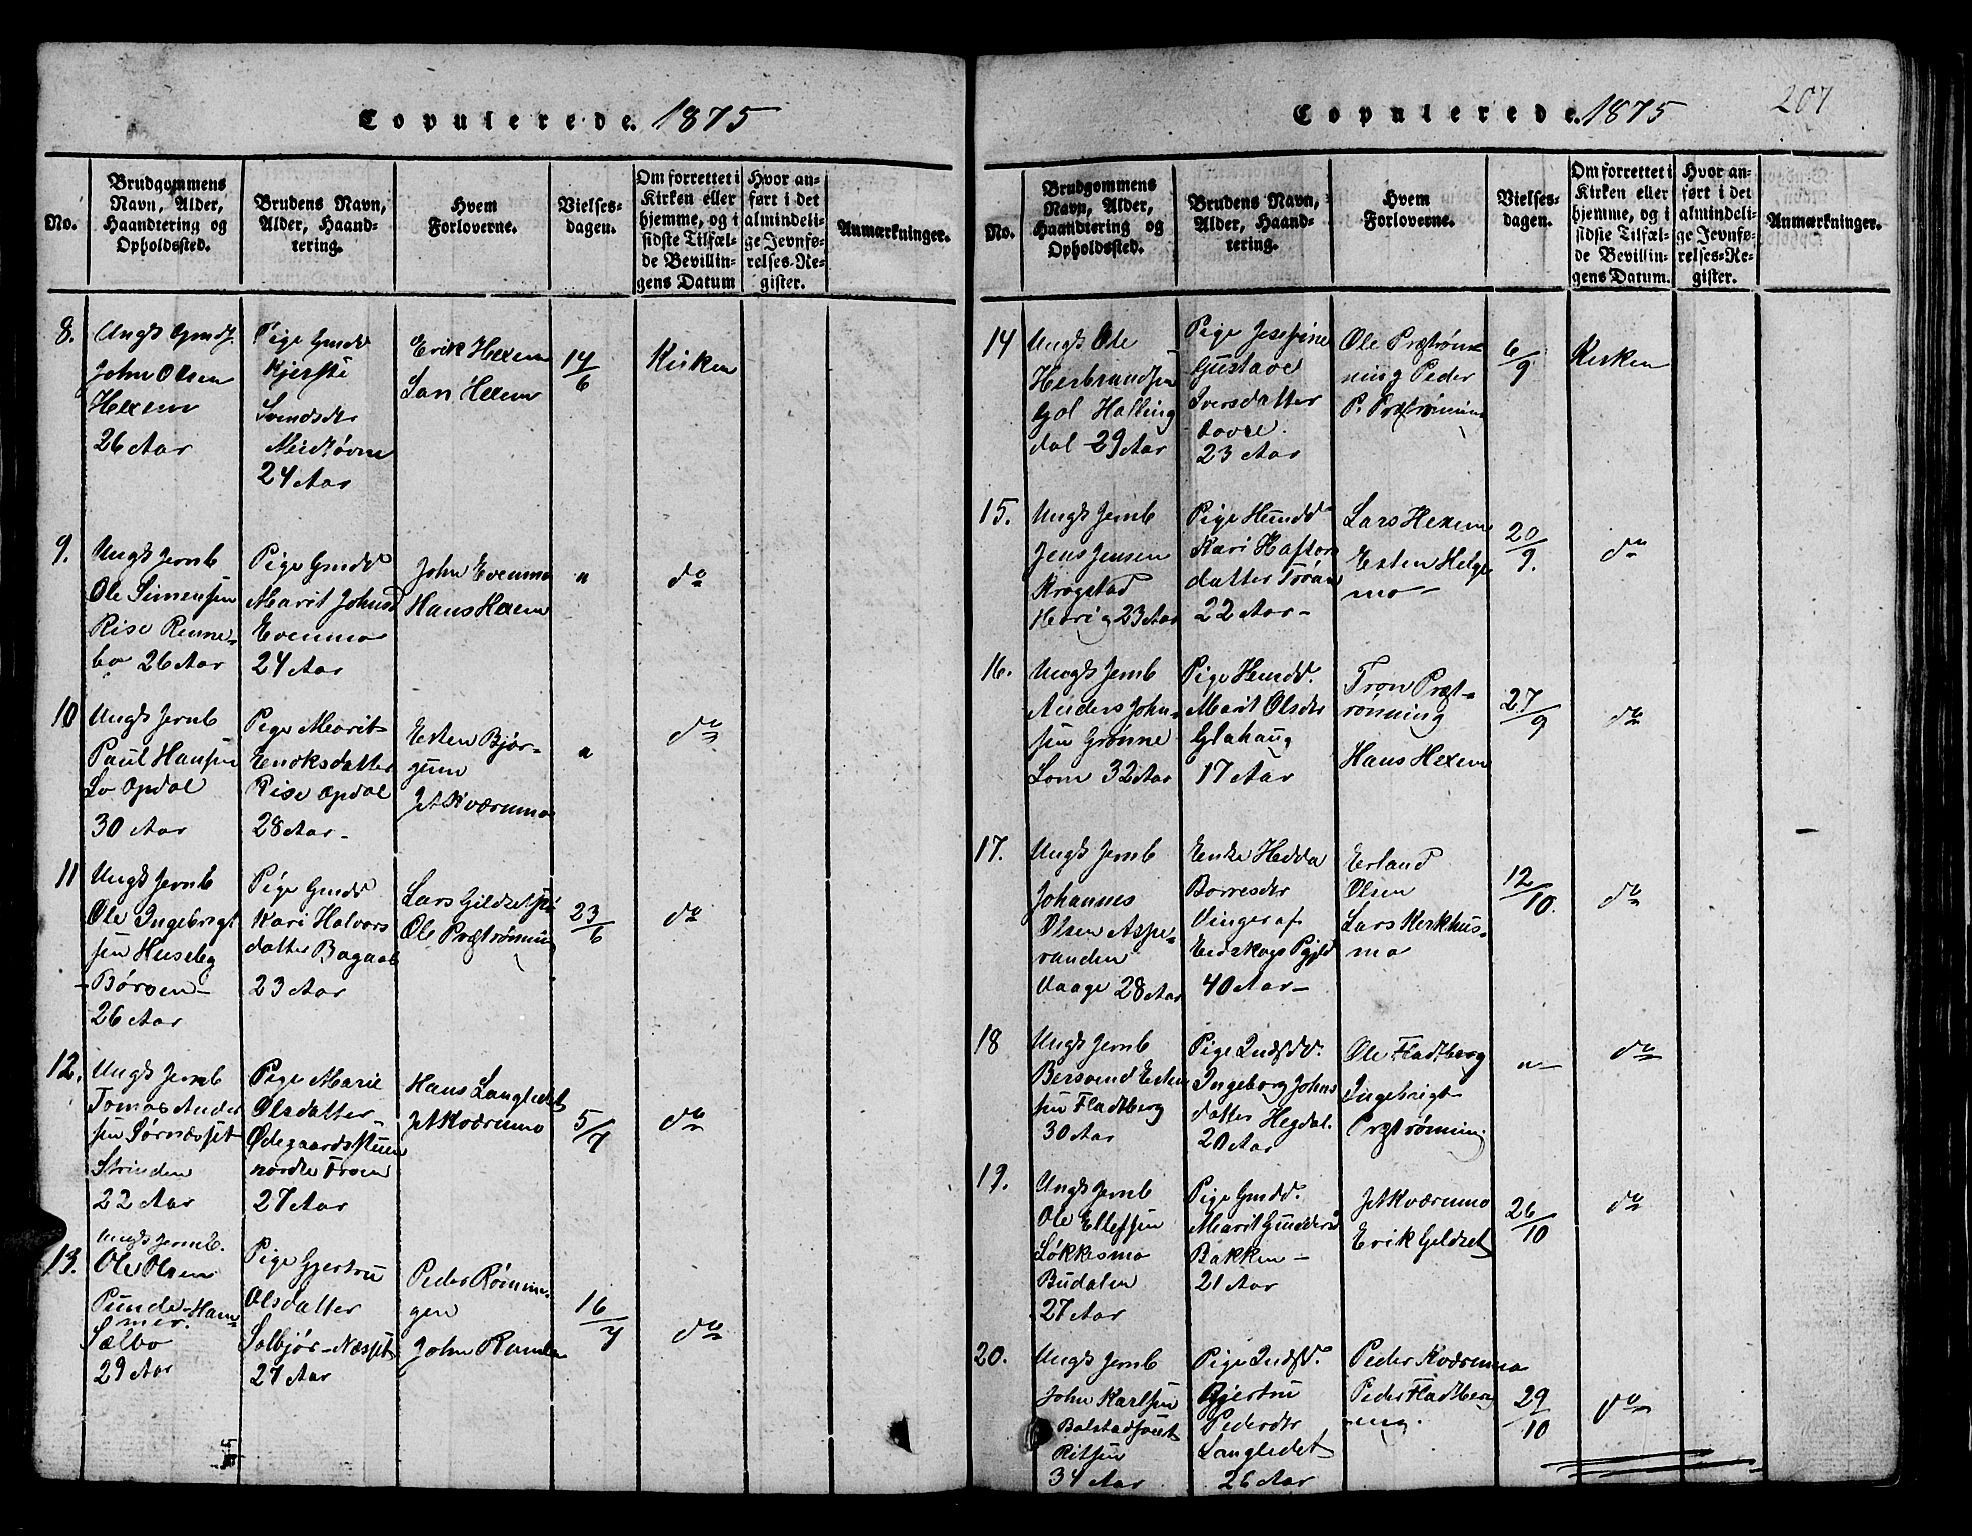 Copulerede. 1875
No.
Brudgommens
Navn, Alder,
Haandtering og
Opholdssted.
Brudens Navn,
Alder, Haand-
tering.
Hvem
Forloverne.
Vielses-
dagen.
Om forrettet i
Kirken eller
hjemme, og i
sidste Tilfæl-
de Bevillin-
gens Datum
Hvor an-
ført i det
almindeli-
ge Jevnfø-
relses-Re-
gister.
Anmærkninger.
8.
Ungk Gmdf.
John Olsen
Hexem
26 Aar
Pige Gmdd
Kjersti
Svendsdtr
24 Aar
Erik Hexem
Lars Hexem
14/6
Kirken
9.
Ungk Jernb
Ole Simensen
Rise Renne-
bo 26 Aar
Pige Gmdd
Marit Johnsd
Evenmo
24 Aar
John Evenmo
Hans Hexem
"
do
10
Ungk Jernb
Paul Hansen
Lo Opdal
30 Aar
Pige Marit
Eriksdatter
Rise Opdal
28 Aar
Esten Bjør-
gum
JA Kværnmo
"
do
11
Ungk Jernb
Ole Ingebrigt
sen Huseby
Børsen
26 Aar
Pige Gmdd
Kari Halvors
datter Bogaas
23 Aar
Lars Gildset
Ole Prætrønning
23/6
do
12.
Ungk Jernb
Tomas Ander
sen Sørnæsset
Strinden
22 Aar
Pige Marie
Olsdatter
Ødegaardsstuen
nordre Froen
27 Aar
Hans Langledet
JA Kværnmo
5/7
do
13.
Ungk Jernb.
Ole Olsen
Punde-Ham
mer.
Sælbo
29 Aar
Pige Gjertru
Olsdatter
Solbjør-Næsset
27 Aar
Peder Rønnin-
gen
John
16/7
do
Copulerede. 1875
207
No.
Brudgommens
Navn, Alder,
Haandtering og
Opholdssted.
Brudens Navn,
Alder, Haand-
tering.
Hvem
Forloverne.
Vielses-
dagen.
Om forrettet i
Kirken eller
hjemme, og i
sidste Tilfæl-
de Bevillin-
gens Datum.
Hvor an-
ført i det
almindeli-
ge Jevnfø-
relses-Re-
gister.
Anmærkninger.
14
Ungk Ole
Herbrandsen
Gol Halling
dal 29 Aar
Pige Josefine
Gustave
Iversdatter
Dovre.
23 Aar
Ole Prætrøn-
ning Peder
P. Prætrønning
6/9
Kirken
15.
Ungk Jernb
Jens Jensen
Krogstad
Horrig 23 Aar
Pige Husmdd
Kari Haftors
datter Troan
22 Aar
Lars Hexem
Esten Helge
mo
20/9.
do
16.
Ungk Jernb
Anders John-
sen Grønne
Lom 32 Aar
Pige Husmdd.
Marit Olsdtr
Glahaug
17 Aar
Tron Præt-
rønning
Hans Hexem
27/9
do
17.
Ungk Jernb
Johannes
Olsen Aspe-
randen
Vaage 28 Aar
Enke Hedda
Borresdtr
Vinger af
Eidskogs Pgjld
40 Aar
Erland
Olsen
Lars Kirkhus-
mo
12/10.
do
18
Ungk Jernb
Bersvend Esten
sen Fladtberg
30 Aar
Pige Indsd.
Ingeborg Johns
datter Hegdal.
20 Aar
Ole Fladtberg
Ingebrigt
Prætrønning
"
do
19.
Ungk Jernb
Ole Ellefsen
Løkkesmo
Budalen
27 Aar
Pige Gmdd.
Marit Gunders
Bakken
21 Aar
JA Kværnmo
Erik Gildset
26/10
do
20.
Ungk Jernb
John Karlsen
Ritsen
34 Aar
Pige Indsd.
Gjertru
Pedersdtr
Langledet
26 Aar
Peder Kværnmo
Peder Fladtberg
eng.
29/10
do